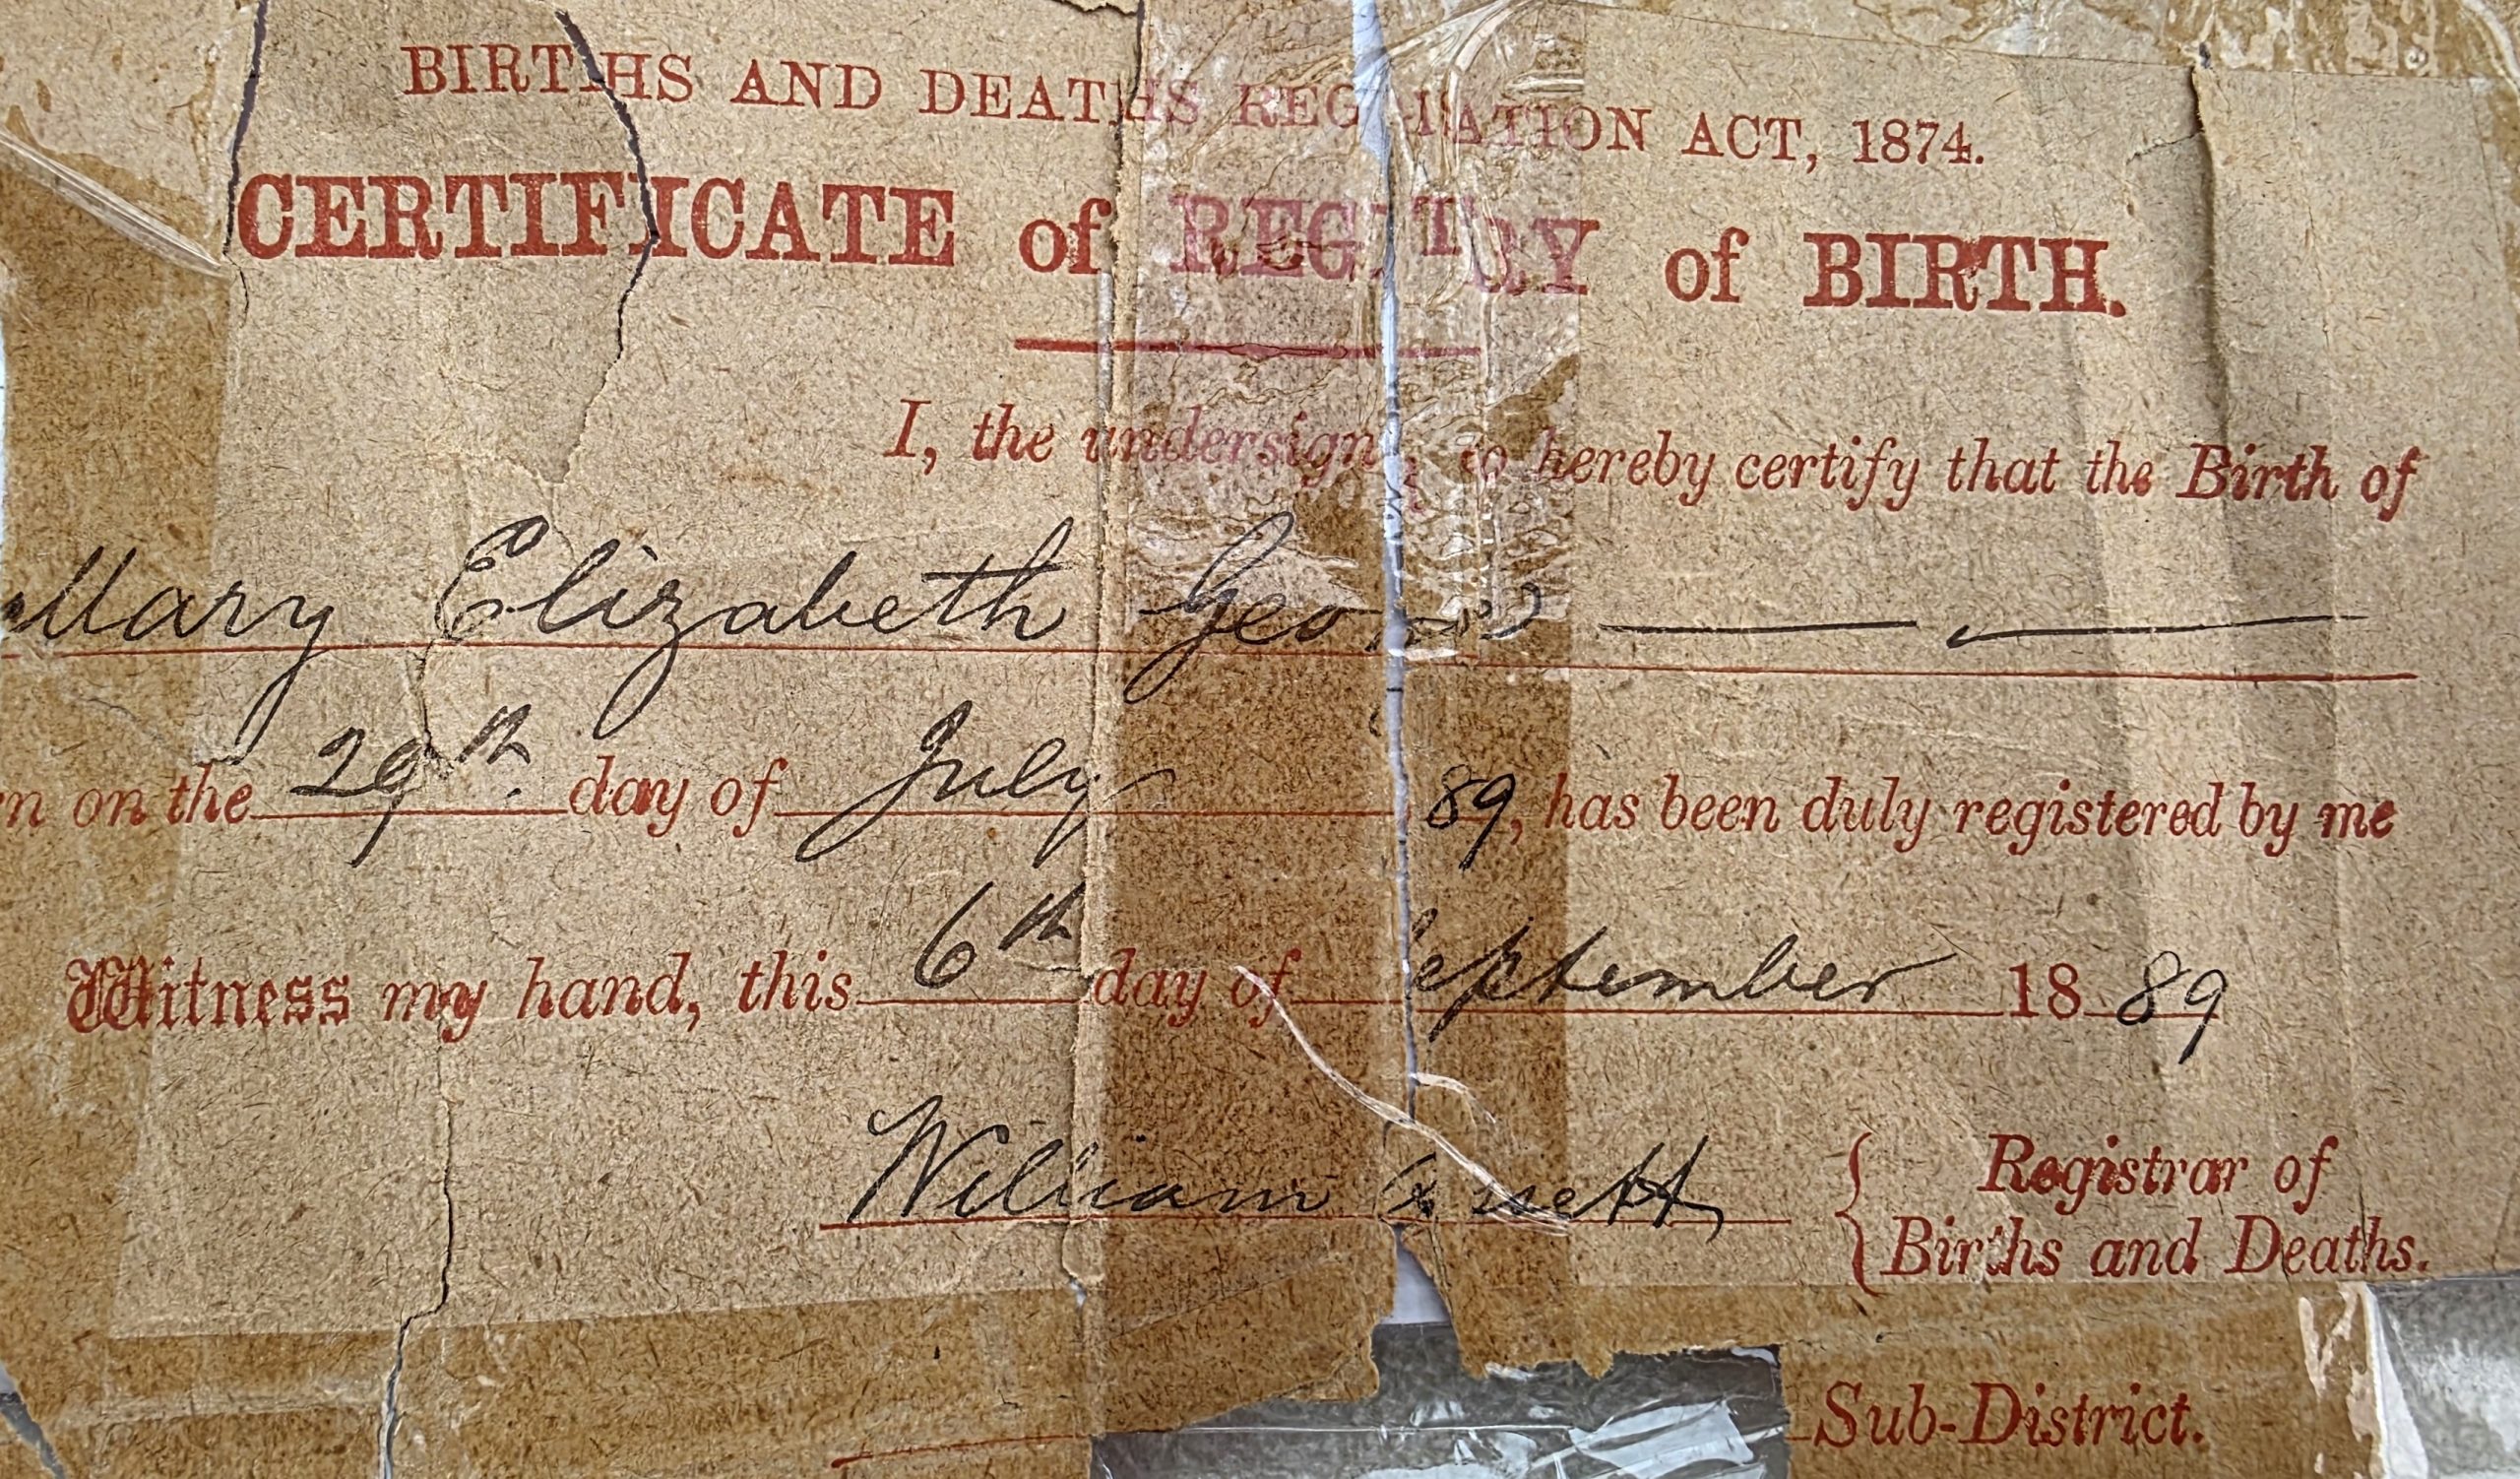 BIRTHS AND DEATHS REGISTRATION ACT, 1874.
CERTIFICATE of REGISTRY of BIRTH.
I, the undersigned, do hereby certify that the Birth of
Mary Elizabeth
n on the 29th day of July 89, has been duly registered by me
Witness my hand, this 6th day of September 18 89
William
Registrar of
Births and Deaths.
Sub-District.